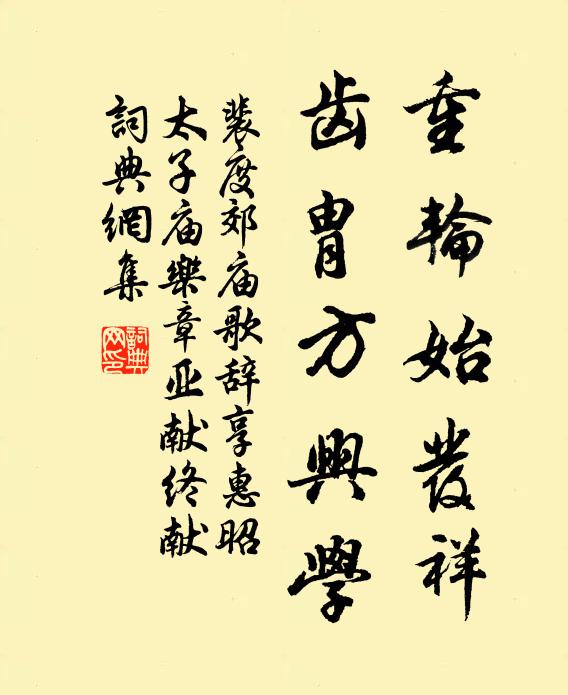 重輪始發祥
齿胄方興學
裴度郊庙歌辞享惠昭
太子庙樂章亚献终献
詞典網集
詞典网印